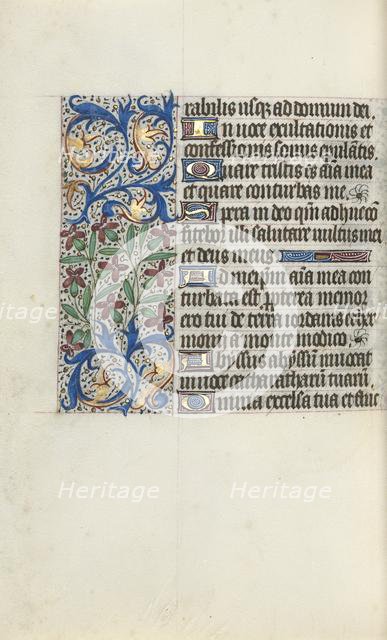 rabilis usq; ad domum dei.
In uoce exultationis et
confessionis sonus epulātis.
Quare tristis es aīa mea
et quare conturbas me
Spera in deo qm̄ adhuc cō
fitebor illi salutare uultus mei
et deus meus
Ad meip̄m aīa mea con
turbata est propterea memor
ero tui de terra iordanis et her
monij a monte modico.
Abyssus abyssū inuocat
in uoce catharactharū tuarū.
Omnia excelsa tua et fluc
Heritage
Heritage
Heritage
Heritage